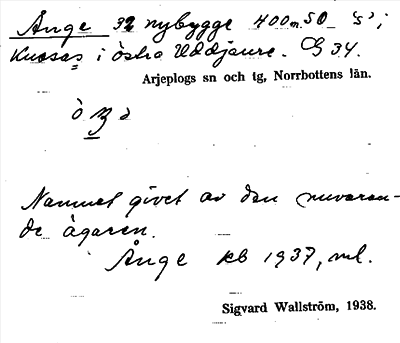 Ånge 32 nybygge 400 m. SO "S";
Kuosas i östra Uddjaure. G 34.
Arjeplogs sn och tg, Norrbottens län.
Namnet givet av den nuvaran-
de ägaren.
Ånge kb 1937, ml.
Sigvard Wallström, 1938.